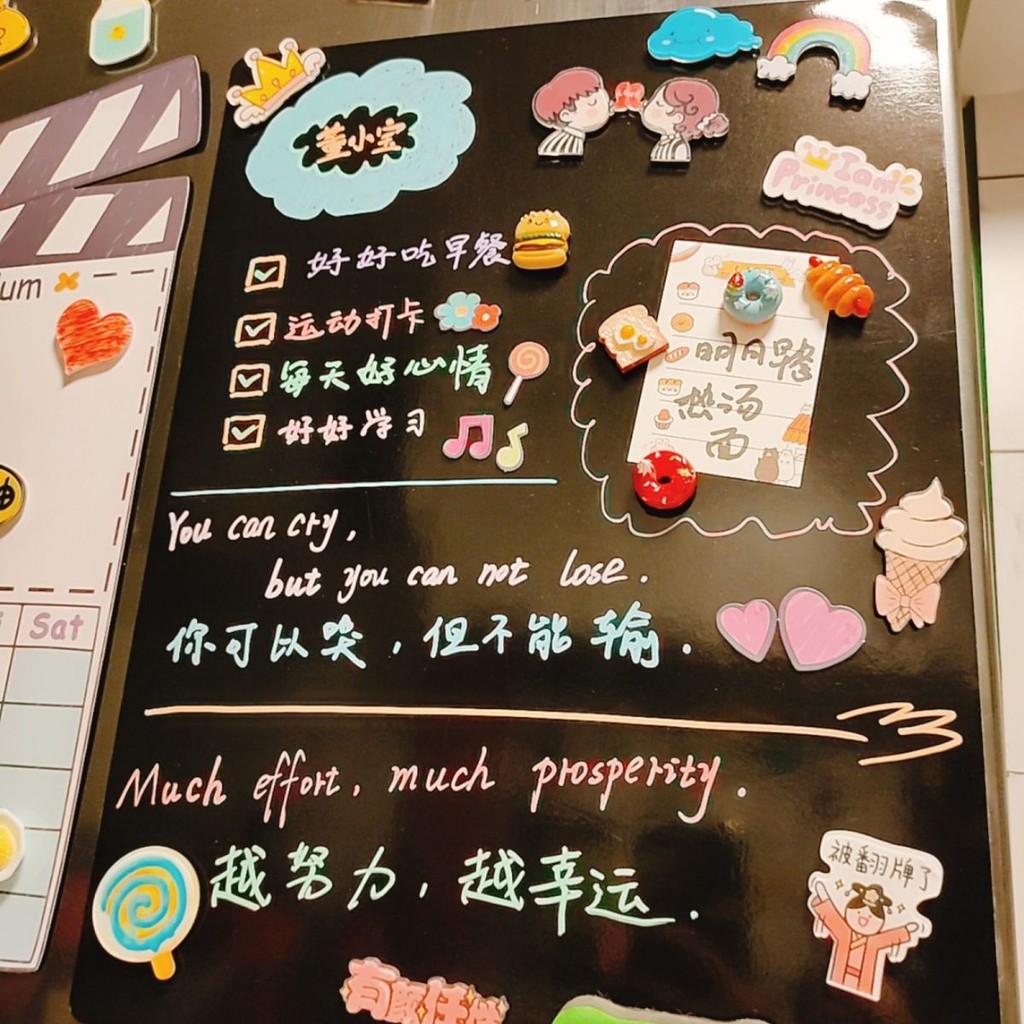 董小宝
I am
Princess
好好吃早餐
运动打卡
每天好心情
好好学习
明日早餐
热汤
面
um
Sat
You can cry,
but you can not lose.
你可以哭,但不能输.
Much effort, much prosperity.
越努力,越幸运.
被翻牌了
有颜任性